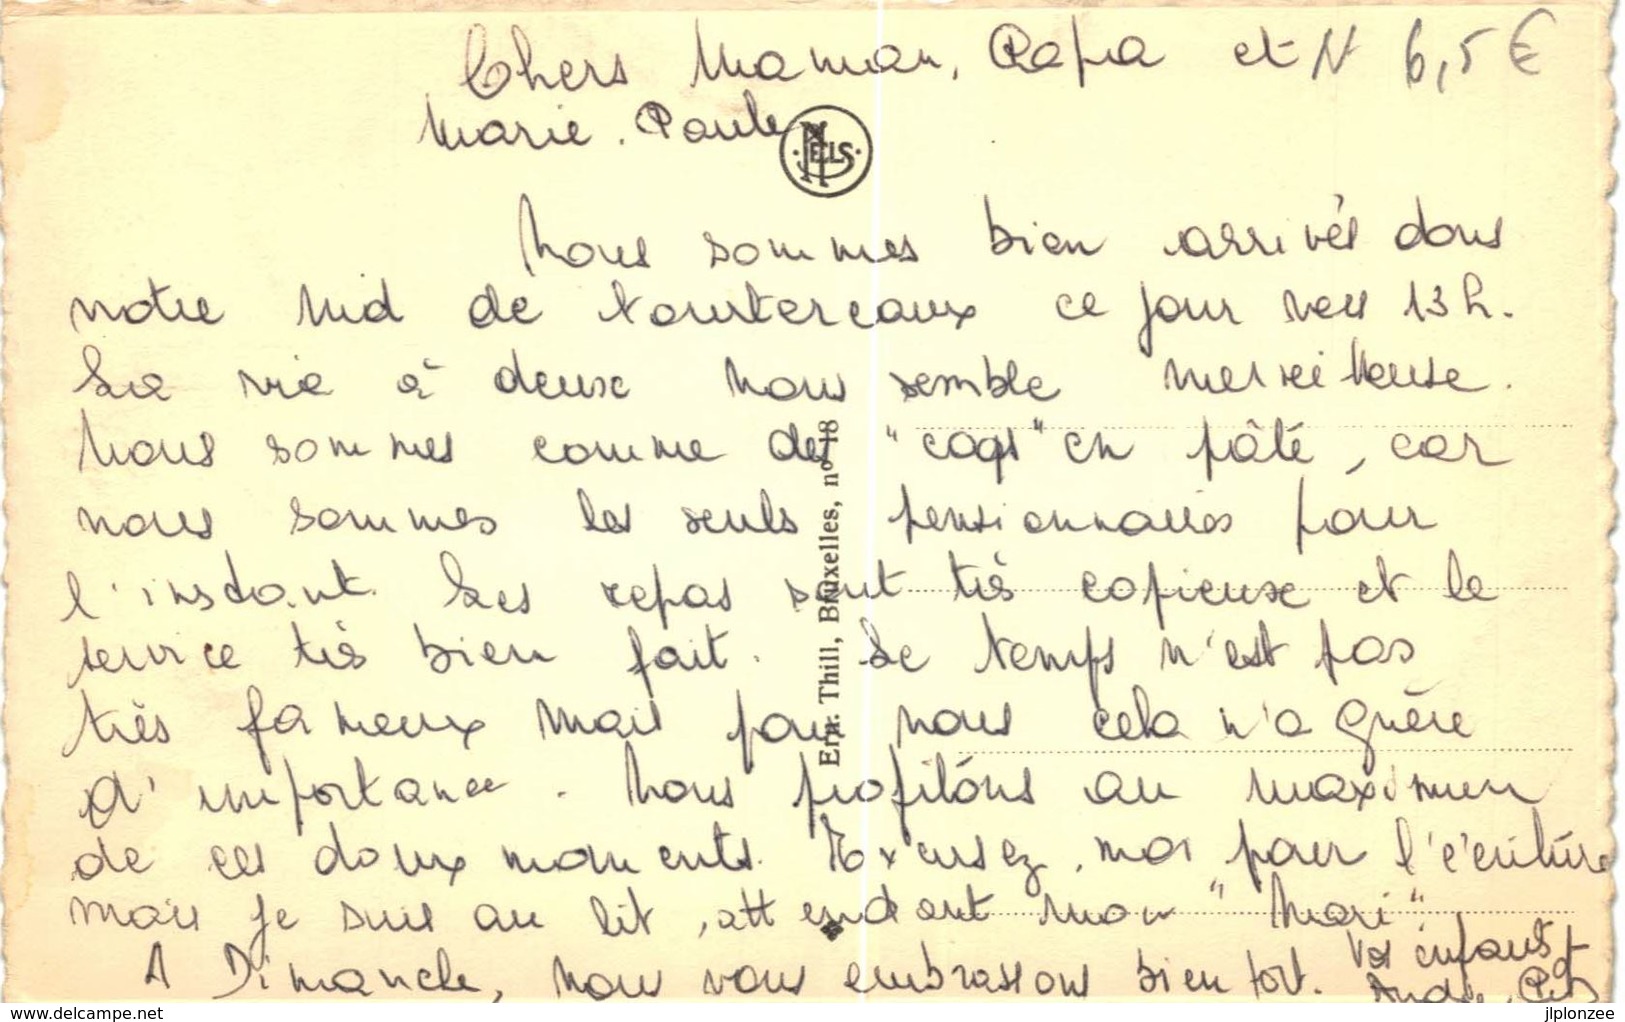 Chers Maman, Papa et N 6,5 €
Marie-Paule
NELS
Nous sommes bien arrivés dans
notre nid de tourtereaux ce jour vers 13 h.
La vie à deux nous semble merveilleuse.
Nous sommes comme des "coqs" en pâté, car
nous sommes les seuls pensionnaires pour
l'instant. Les repas sont très copieux et le
service très bien fait. Le temps n'est pas
très fameux mais pour nous cela n'a guère
d'importance. Nous profitons au maximum
de ces doux moments. Excusez-moi pour l'écriture
mais je suis au lit, attendant mon "Mari".
A Dimanche, nous vous embrassons bien fort. Vos enfants
André,
Ern. Thill, Bruxelles, n° 18
delcampe.net
jlplonzee